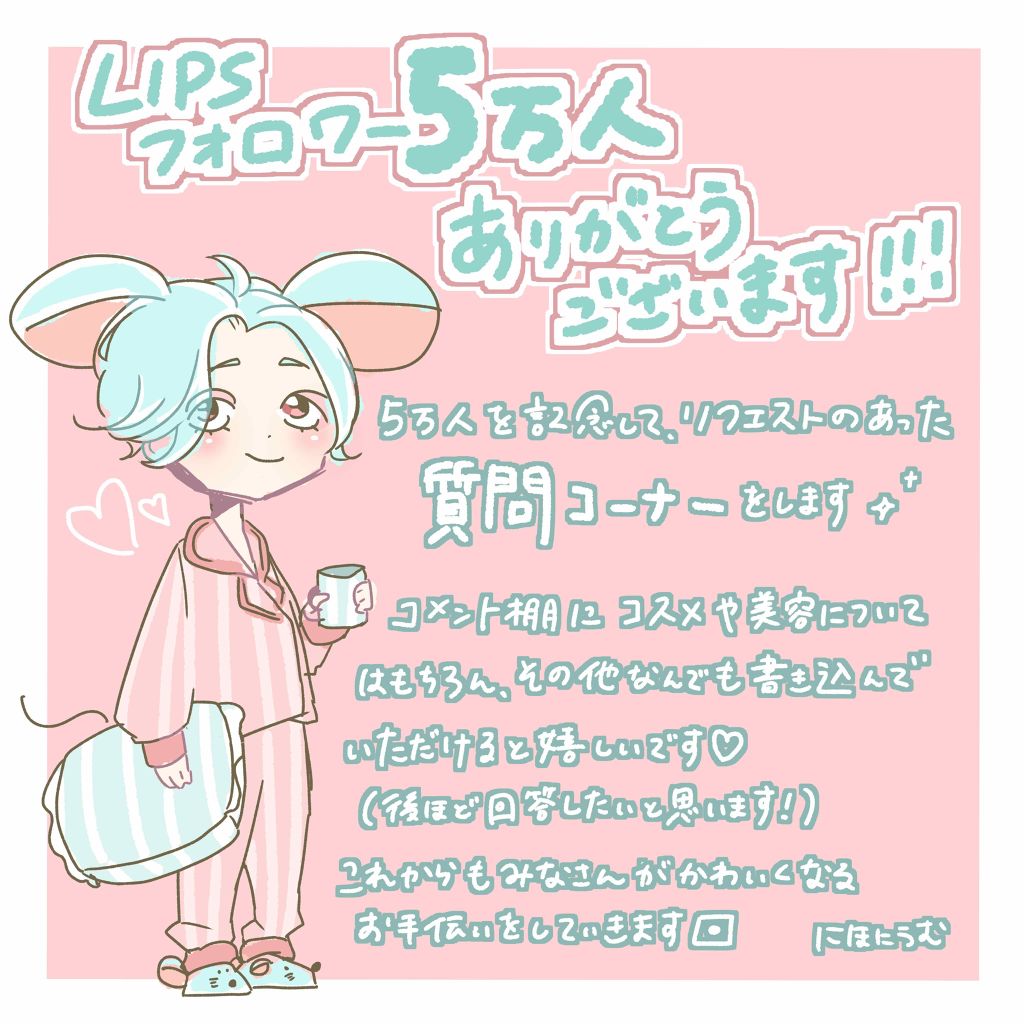 LIPS
フォロワー5万人
ありがとう
ございます!!!
5万人を記念して、リクエストのあった
質問コーナーをします
コメント棚にコスメや美容について
はもちろん、その他なんでも書き込んで
いただけると嬉しいです♡
(後ほど回答したいと思います!)
これからもみなさんがかわいくなる
お手伝いをしていきます
にほにうむ